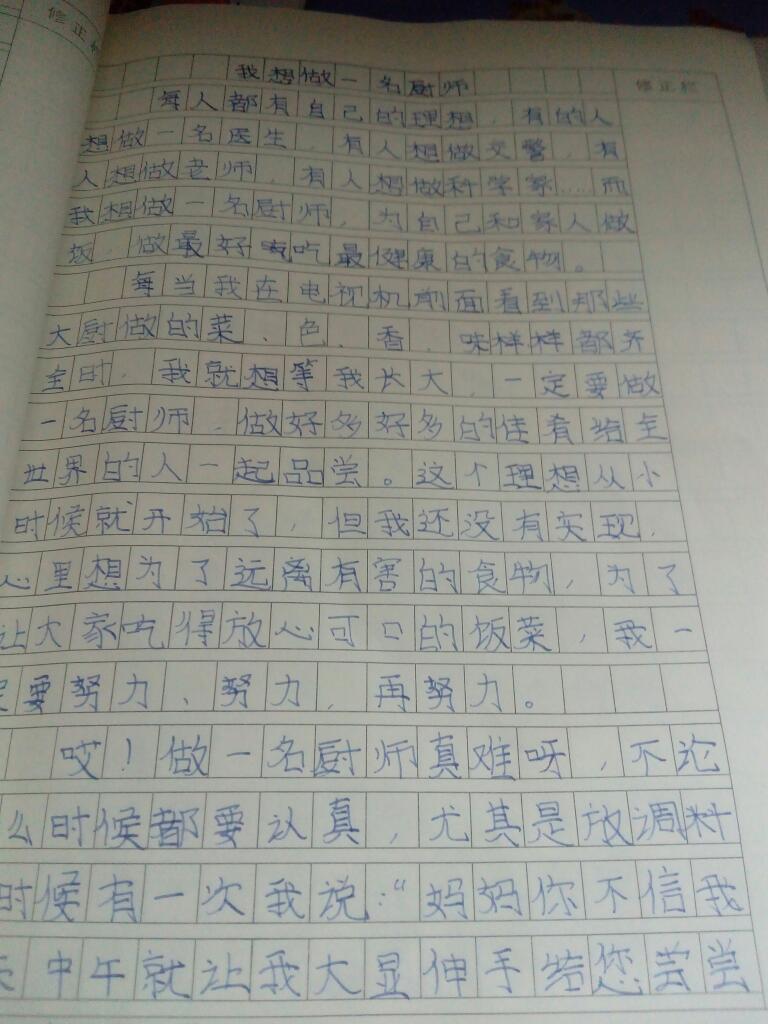 修正栏
修正栏
我想做一名厨师
每人都有自己的理想，有的人
想做一名医生，有人想做交警，有
人想做老师，有人想做科学家……而
我想做一名厨师，为自己和家人做
饭，做最好吃最健康的食物。
每当我在电视机前面看到那些
大厨做的菜、色、香、味样样都齐
全时，我就想等我长大，一定要做
一名厨师，做好多好多的佳肴给全
世界的人一起品尝。这个理想从小
时候就开始了，但我还没有实现，
心里想为了远离有害的食物，为了
让大家吃得放心可口的饭菜，我一
定要努力、努力，再努力。
哎！做一名厨师真难呀，不论
么时候都要认真，尤其是放调料
时候有一次我说：“妈妈你不信我
天中午就让我大显伸手给您尝尝